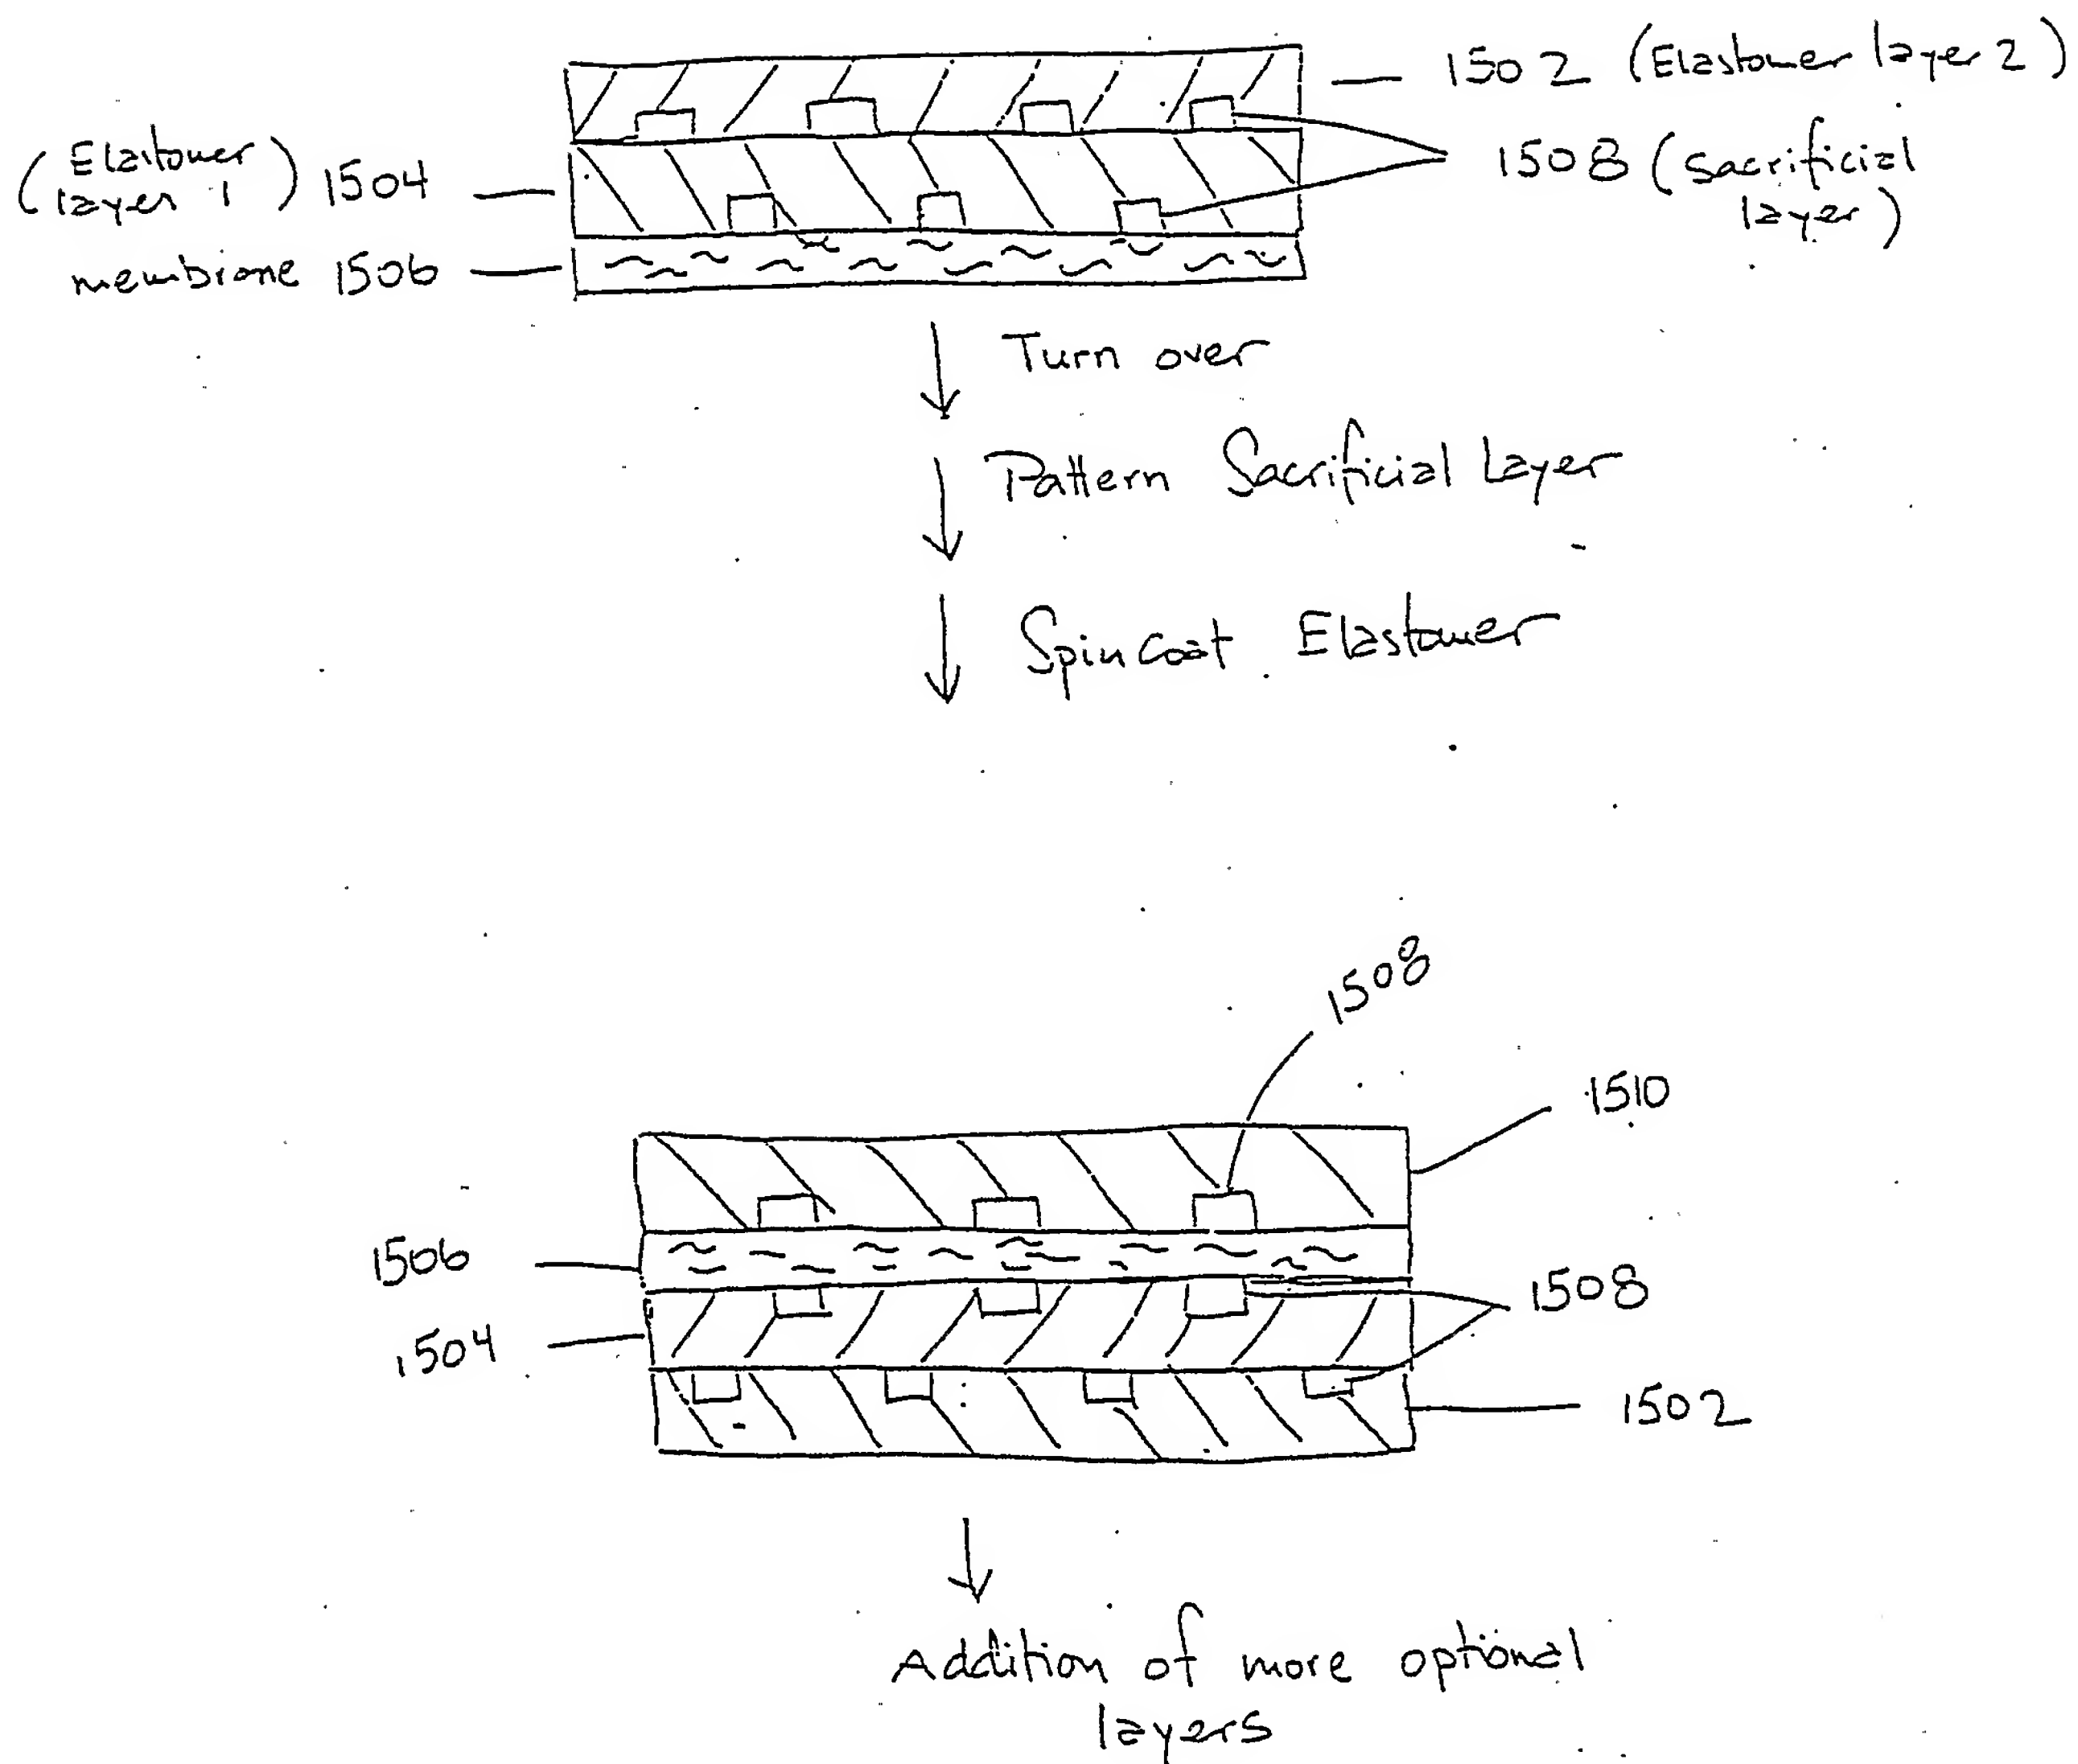 1502 (Elastomer layer 2)
(Elastomer layer 1) 1504
1508 (sacrificial layer)
membrane 1506
Turn over
Pattern Sacrificial Layer
Spin coat Elastomer
1508
1510
1506
1508
1504
1502
Addition of more optional
layers